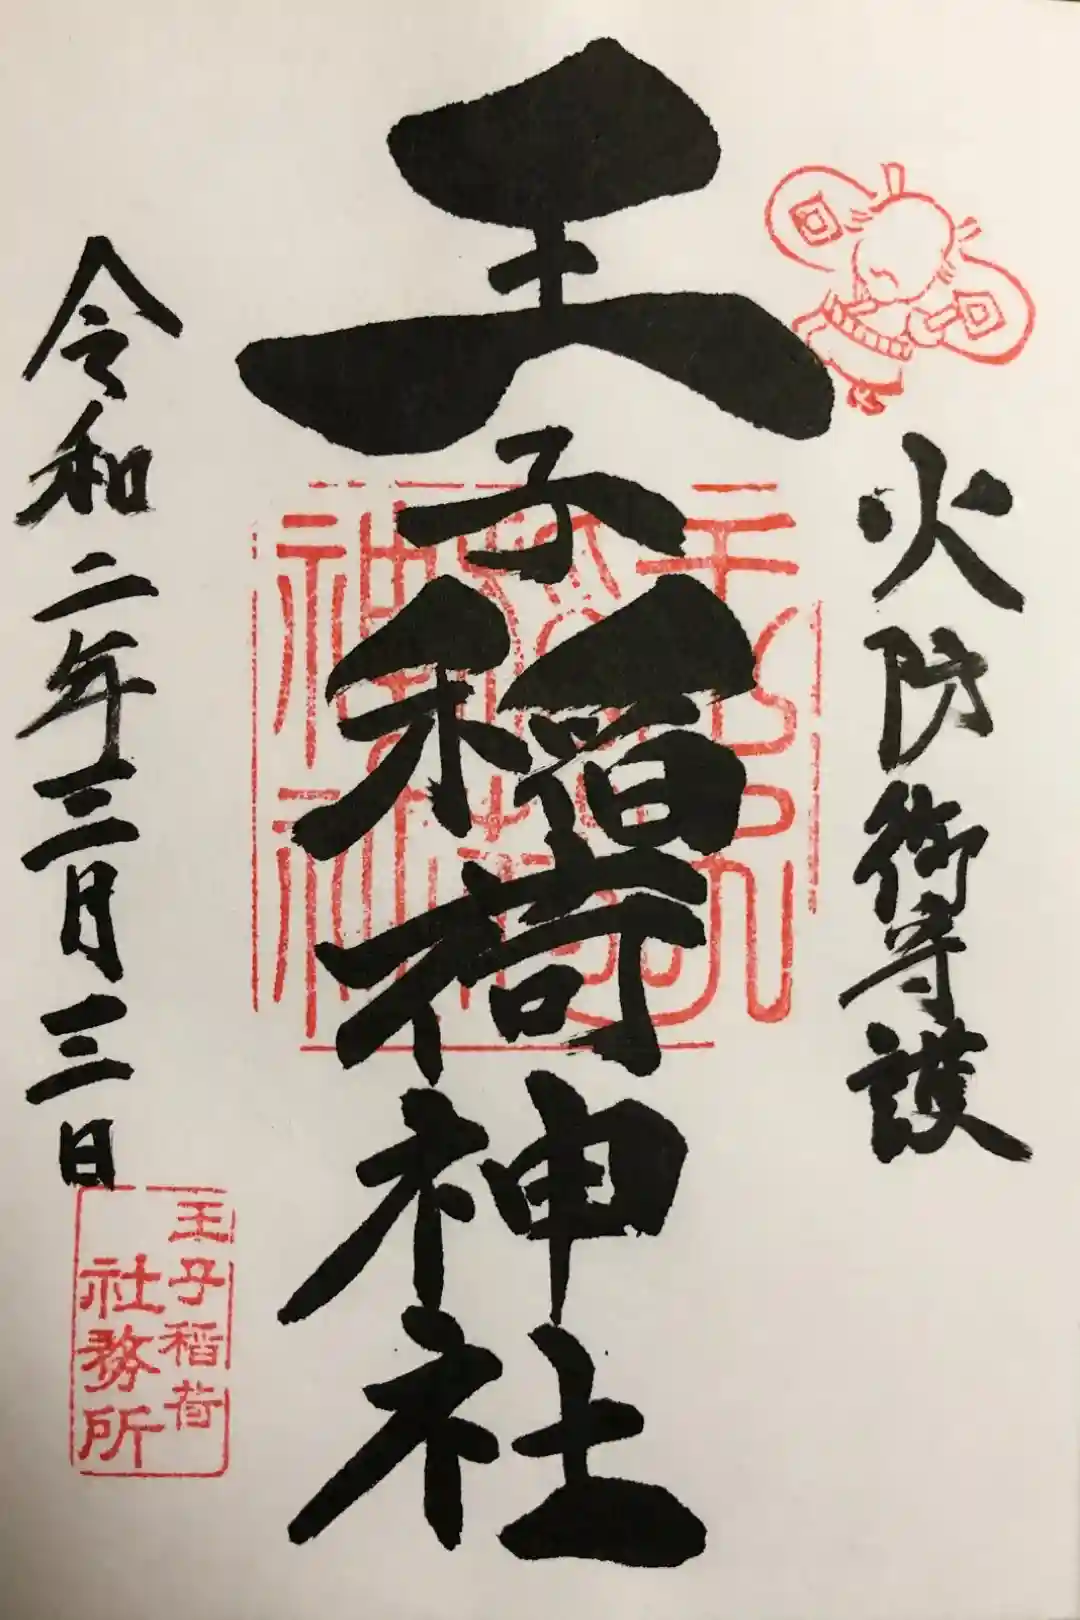 火防御守護
王子稲荷神社
令和二年三月三日
王子稲荷
社務所